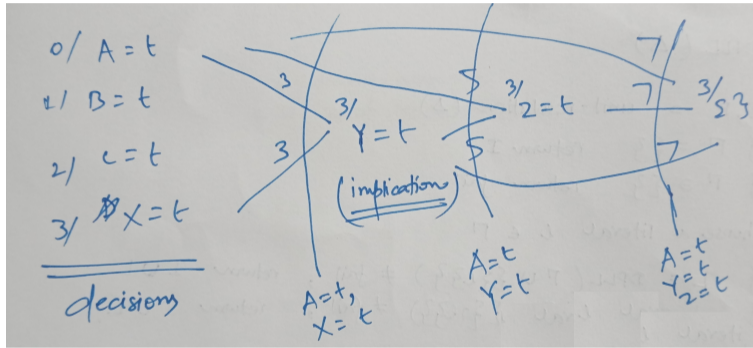 0/ A=t
1/ B=t
2/ C=t
3/ X=t
decisions
3
3
3/
Y=t
(implication)
A=t,
X=t
5
5
3/
2=t
A=t
Y=t
7
7
7
3/
{}
A=t
Y=t
2=t